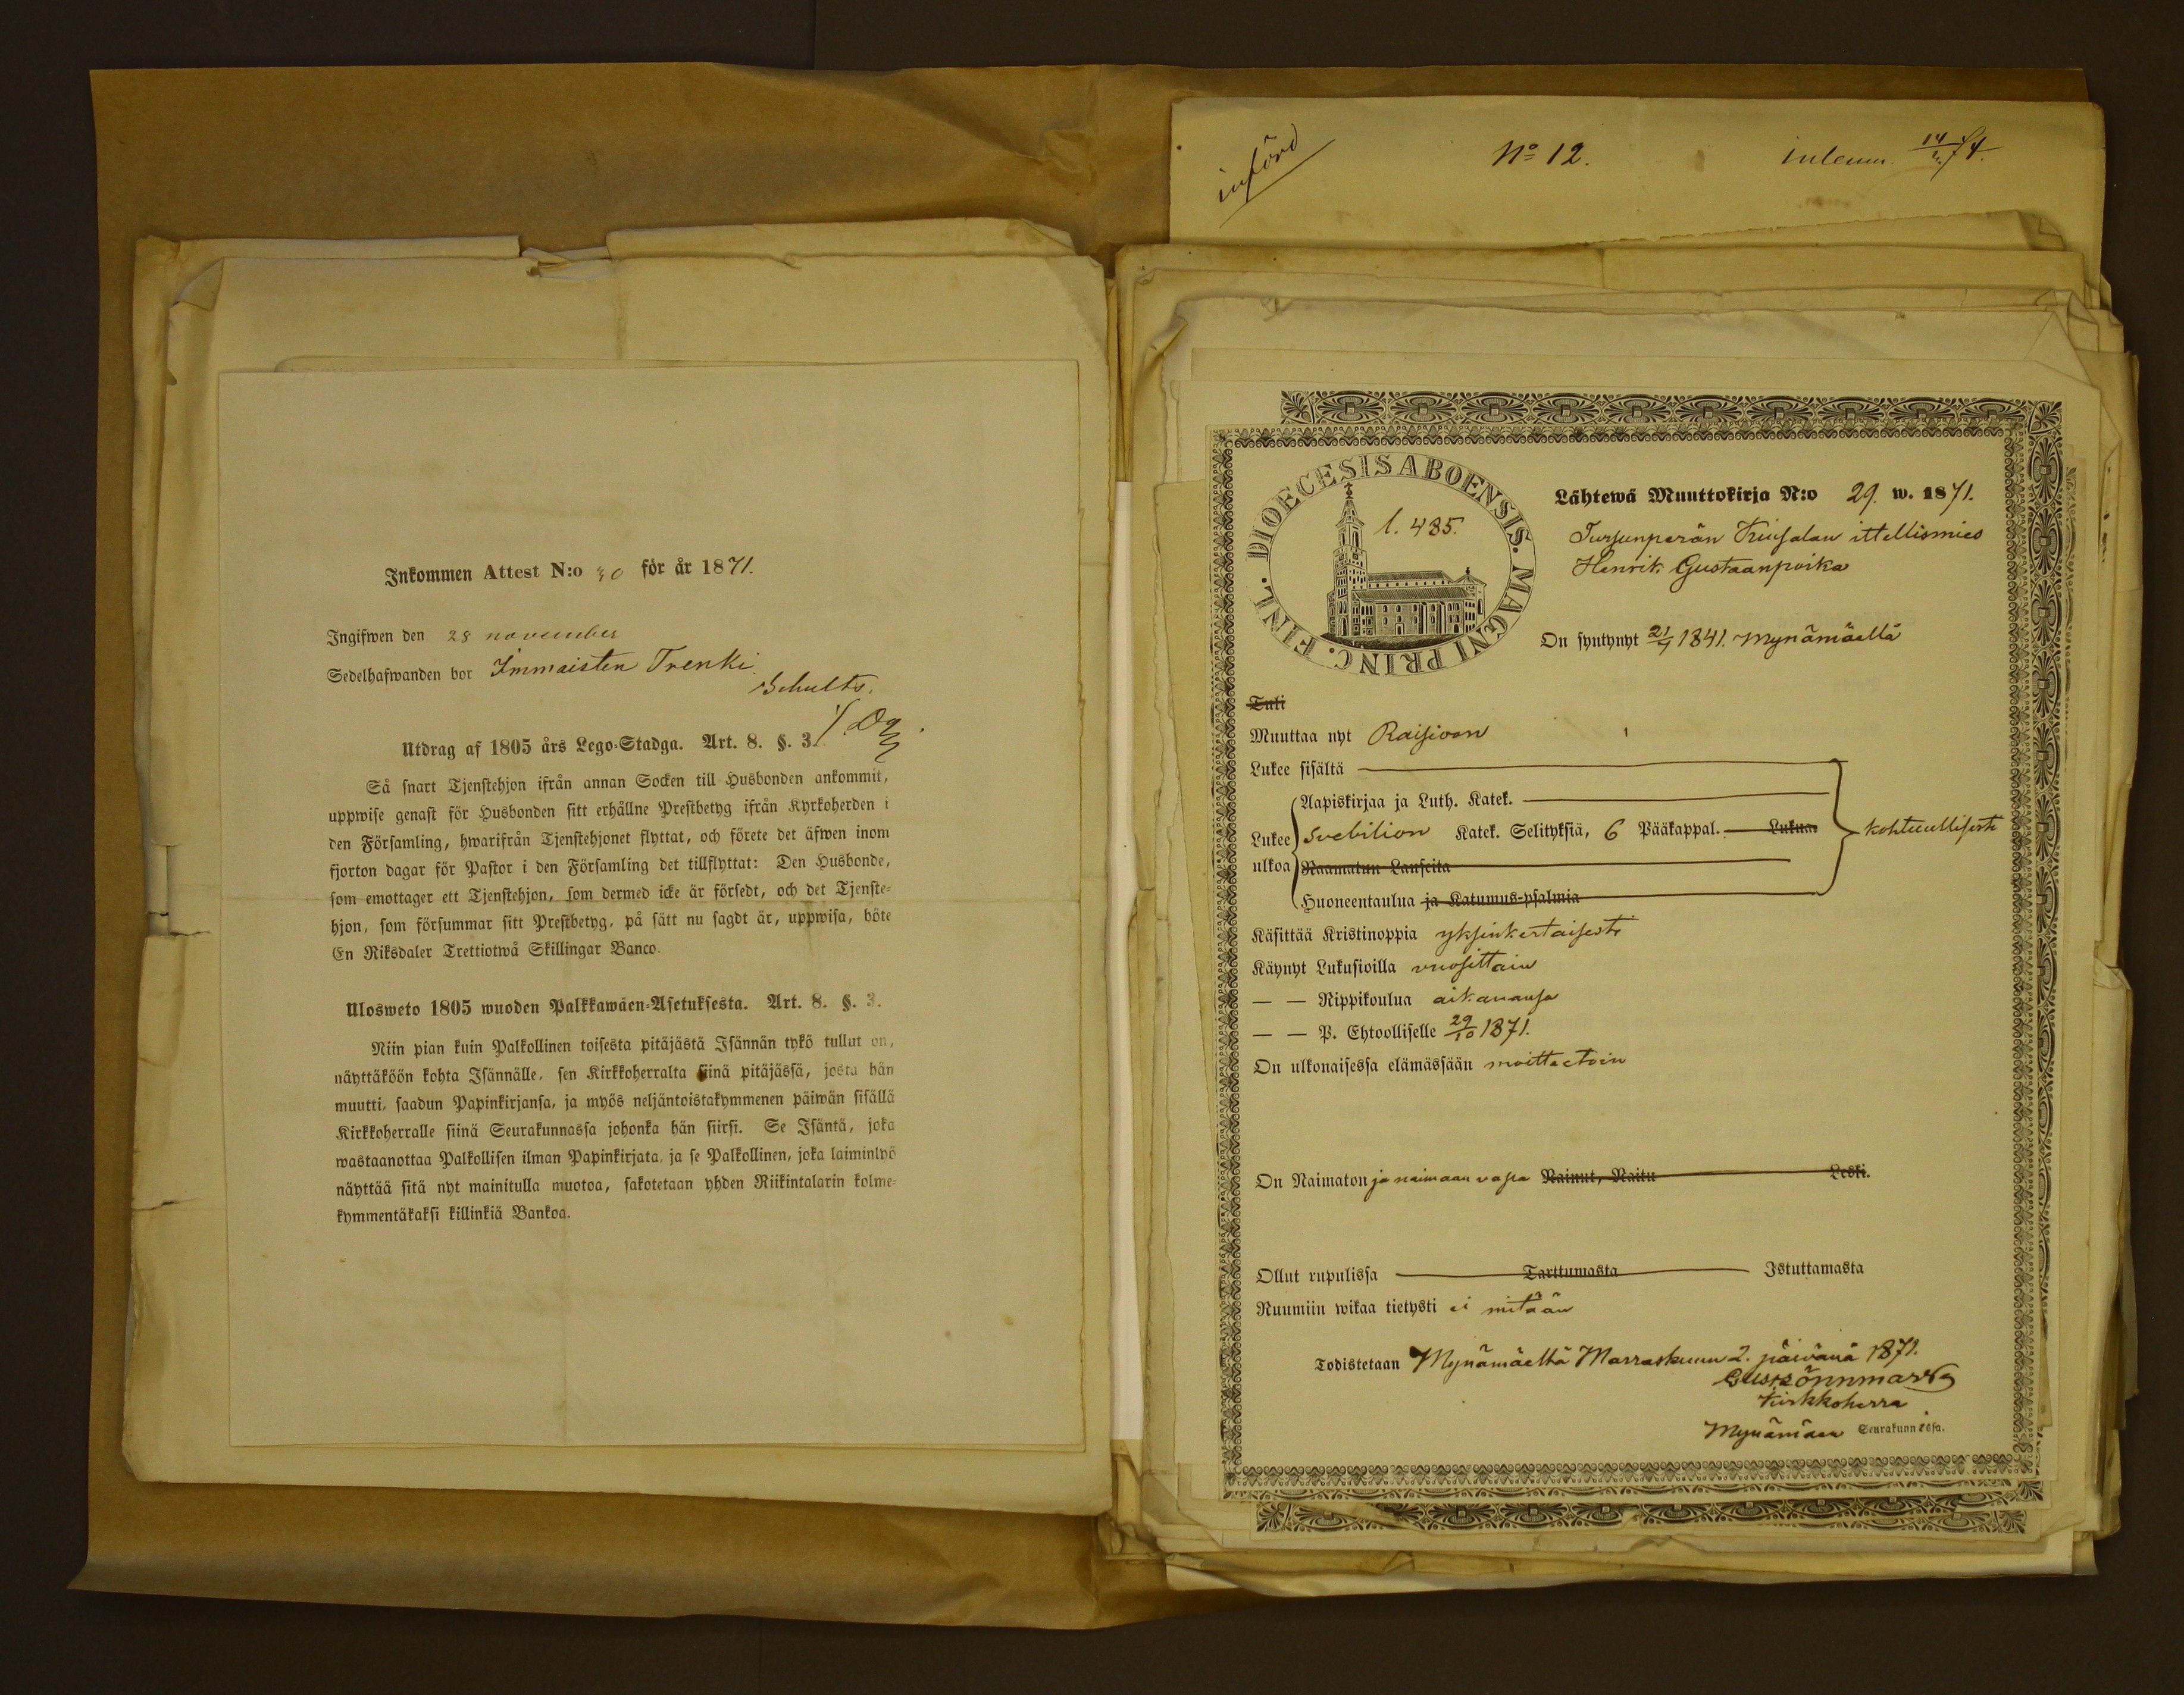 Inkommen Attest N:o 30 för år 1871.
Ingifwen den 28 november
Sedelhafwanden bor Immaisten Trenki
Schults.
Utdrag af 1805 års Lego-Stadga. Art. 8. §. 3.
Så snart Tjenstehjon ifrån annan Socken till Husbonden ankommit,
uppwise genast för Husbonden sitt erhållne Prestbetyg ifrån Kyrkoherden i
den Församling, hwarifrån Tjenstehjonet flyttat, och förete det äfwen inom
fjorton dagar för Pastor i den Församling det tillflyttat: Den Husbonde,
som emottager ett Tjenstehjon, som dermed icke är försedt, och det Tjenste-
hjon, som försummar sitt Prestbetyg, på sätt nu sagdt är, uppwisa, böte
En Riksdaler Trettiotwå Skillingar Banco.
Ulosweto 1805 wuoden Palkkawäen-Asetuksesta. Art. 8. §. 3.
Niin pian kuin Palkollinen toisesta pitäjästä Isännän tykö tullut on,
näyttäköön kohta Isännälle, sen Kirkkoherralta siinä pitäjässä, josta hän
muutti, saadun Papinkirjansa, ja myös neljäntoistakymmenen päiwän sisällä
Kirkkoherralle siinä Seurakunnassa johonka hän siirsi. Se Isäntä, joka
wastaanottaa Palkollisen ilman Papinkirjata, ja se Palkollinen, joka laiminlyö
näyttää sitä nyt mainitulla muotoa, sakotetaan yhden Riikintalarin kolme-
kymmentäkaksi killinkiä Bankoa.
införd
No 12.
inlemn. 14/74.
DIOECESIS ABOENSIS. MAGNI PRINC. FINL.
l. 485.
Lähtewä Muuttokirja N:o 29. w. 1871.
Tursunperän ittellismies
Henrik Gustaanpoika
On syntynyt 21/7 1841. Mynämäellä
Tuli
Muuttaa nyt Raisioon
Lukee sisältä
Aapiskirjaa ja Luth. Katek.
Lukee ulkoa Svebilion Katek. Selityksiä, 6 Pääkappal. Lukua. kohtuullisesti
Raamatun Lauseita
Huoneentaulua ja Katumus-psalmia
Käsittää Kristinoppia yksinkertaisesti
Käynyt Lukusioilla vuosittain
— — Rippikoulua aikanansa
— — P. Ehtoolliselle 29/10 1871.
On ulkonaisessa elämässään moittectoin
On Naimaton ja naimaan vapa Nainut, Naitu Leski.
Ollut rupulissa Tarttumasta Istuttamasta
Ruumiin wikaa tietysti ei mitään
Todistetaan Mynämäellä Marraskuun 2. päivänä 1871.
Gust Sönnmark
Kirkkoherra
Mynämäen Seurakunnassa.